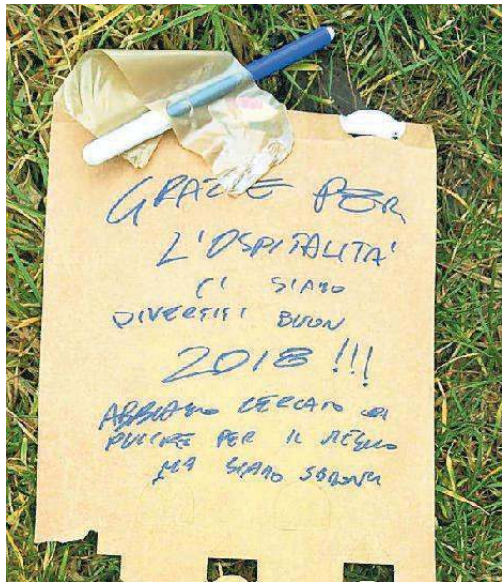 GRAZIE PER
L'OSPITALITA'
CI SIAMO
DIVERTITI BUON
2018 !!!
ABBIAMO CERCATO DI
PULIRE PER IL MEGLIO
MA SIAMO SBRONZI